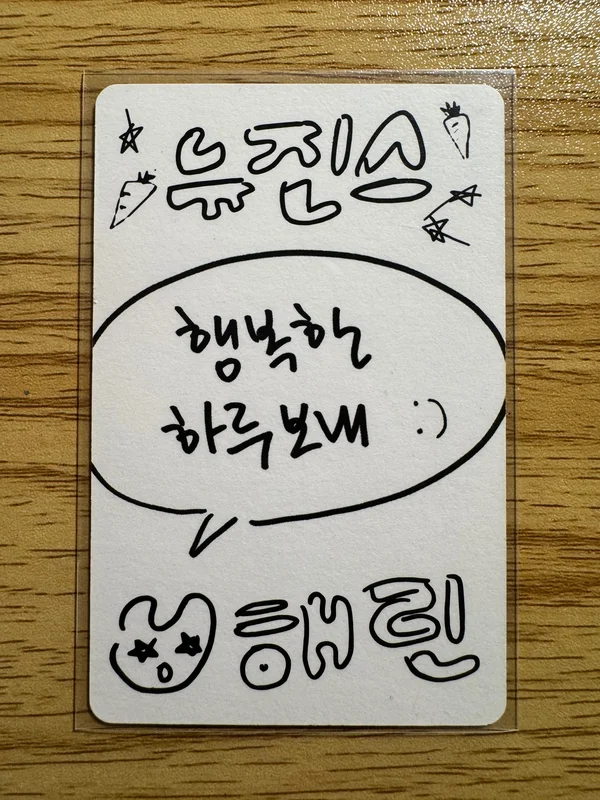 뉴진스
행복한
하루 보내 :)
해린